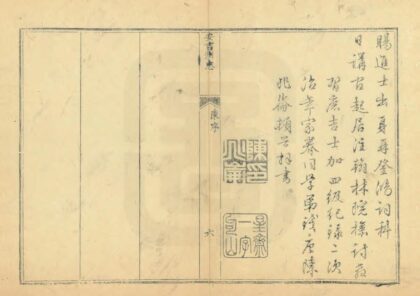 賜進士出身再登鴻詞科
日講官起居注翰林院檢討教
習庶吉士加四級紀錄二次
治年家眷同學弟錢唐陳
兆崙頓首拜書
陳印兆崙
星齋一字句山
安吉州志
陳序
六